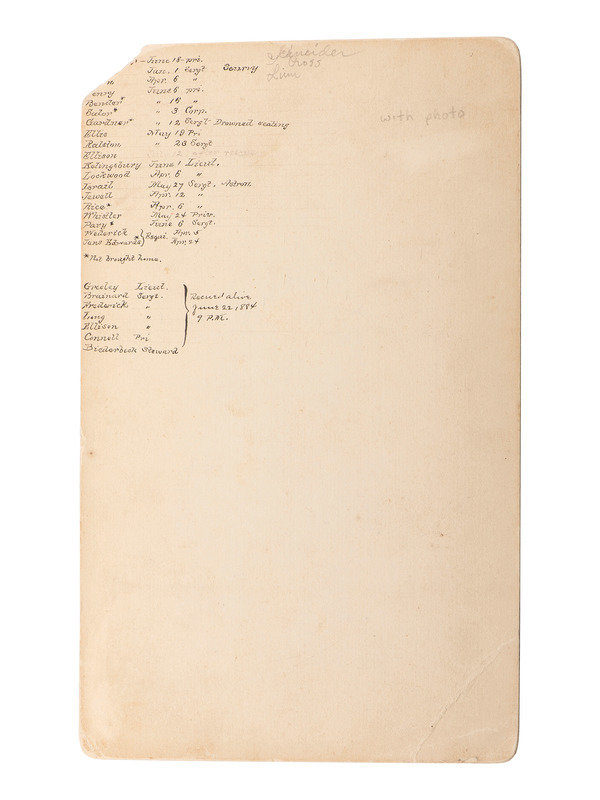 Schneider
Cross
Linn
with photo
- June 18 - pri.
Jan. 1 Sergt Conroy
Apr. 6 "
enry June 6 pri.
Bender " 16 "
Salor* " 3 Corp.
Gardner* " 12 Sergt Drowned sealing
Ellis May 19 Pri
Ralston " 23 Sergt
Ellison
Kislingsbury June 1 Lieut.
Lockwood Apr. 6 "
Israel May 27 Sergt. Astron.
Jewell Apr. 12 "
Rice* Apr. 6 "
Whistler May 24 Priv.
Pavy* June 6 Sergt.
Wederick } Esqui. Apr. 5
Jans Edwards* Apr. 24
*Not brought home.
Greeley Lieut.
Brainard Sergt.
Frederick "
Long "
Ellison "
Connell Pri
Biederbick Steward
Rescued alive
June 22, 1884
9 P.M.